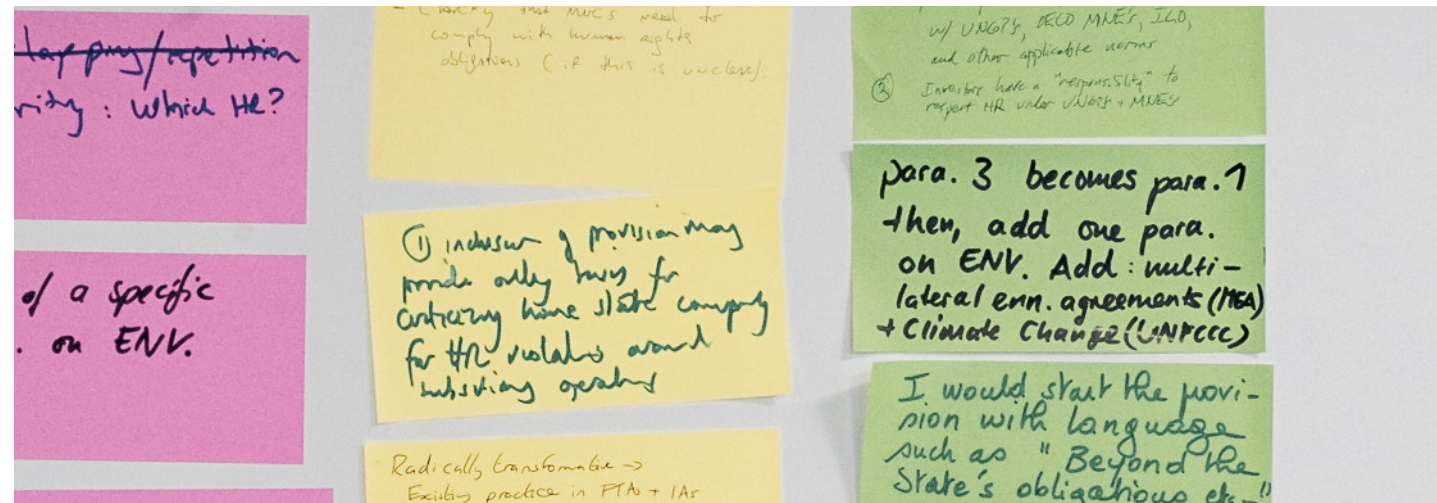 lapping/repetition
rity: Which HR?
of a specific
. on ENV.
- Clarify that MNCs need to
comply with human rights
obligations (if this is unclear).
① inclusion of provision may
provide only basis for
criticizing home state company
for HR violations around
subsidiary
Radically transformative →
Existing practice in FTAs + IAs
w/ UNGPs, OECD MNE's, ILO,
and other applicable norms
② Investors have a "responsibility" to
respect HR under UNGPs + MNE's
para. 3 becomes para. 1
then, add one para.
on ENV. Add: multi-
lateral enn. agreements (MEA)
+ Climate Change (UNFCCC)
I would start the provi-
sion with language
such as "Beyond the
State's obligations etc..."